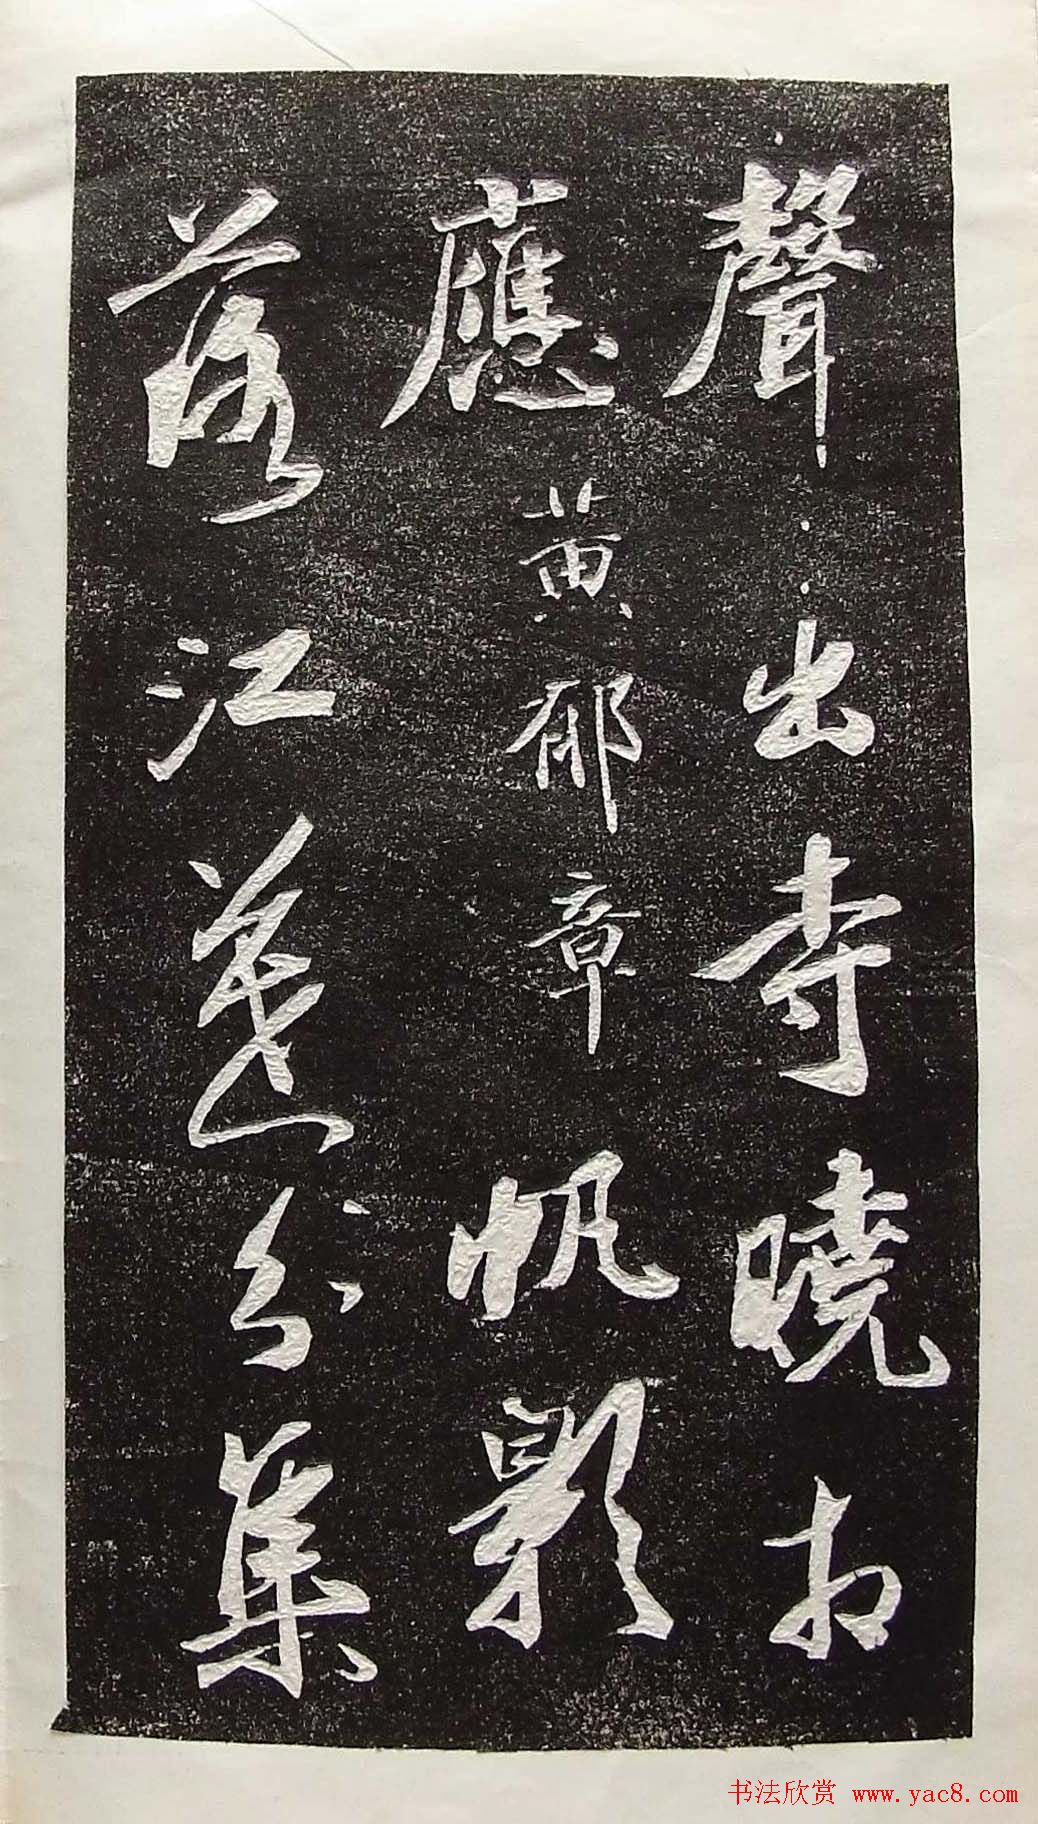 聲出寺曉相
應黄郁章帆影
落江暮分集
书法欣赏 www.yac8.com